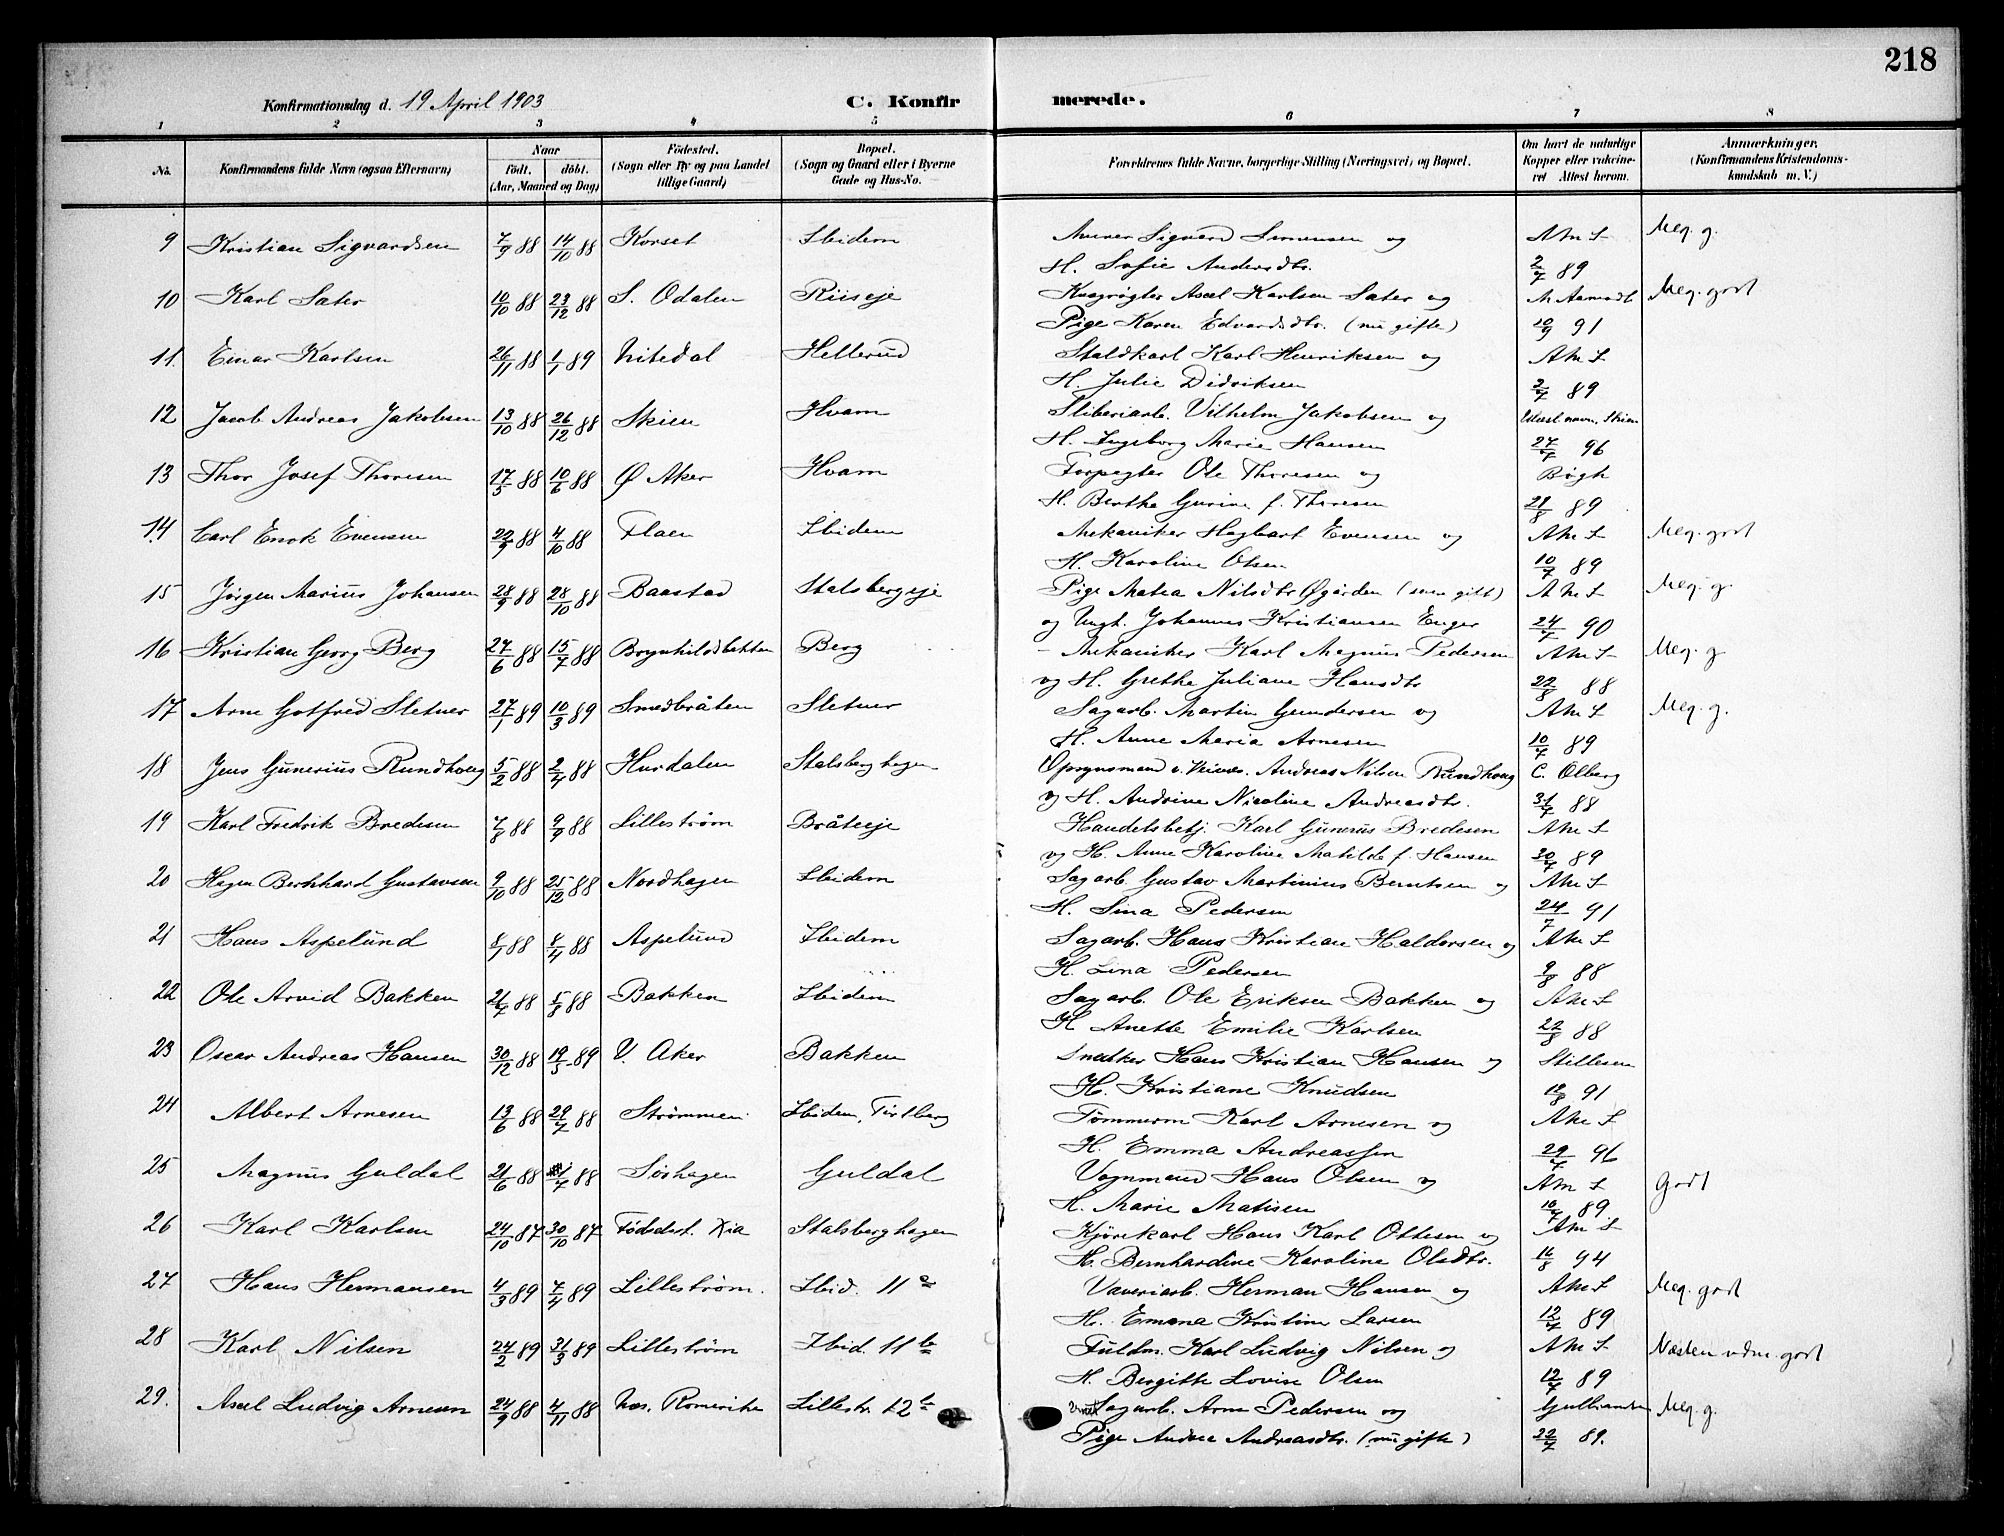 218
Konfirmationsdag d. 19 April 1903 C. Konfirmerede.
1 2 3 4 5 6 7 8
No. Konfirmandens fulde Navn (ogsaa Efternavn) Naar født. døbt. (Aar, Maaned og Dag) Fødested. (Sogn eller By og paa Landet tillige Gaard) Bopæl. (Sogn og Gaard eller i Byerne Gade og Hus-No. Forældrenes fulde Navne, borgerlige Stilling (Næringsvei) og Bopæl. Om havt de naturlige Kopper eller vakcineret Attest herom. Anmærkninger. (Konfirmandens Kristendomskundskab m. V.)
9 Kristian Sigvardsen 7/9 88 14/10 88 Korset Ibidem Murer Sigvard Simensen og Meg. g.
H. Sofie Andersdtr. 2/7 89
10 Karl Sater 10/10 88 23/12 88 S. Odalen Riiseje Karlsen Sater og M Aamodt Meg. godt
Pige Karen Edvardsdtr. (nu gift) 10/9 91
11. Einar Karlsen 26/11 88 1/1 89 Nitedal Hellerud Staldkarl Karl Henriksen og
H. Julie Didriksen 2/7 89
12 Jacob Andreas Jakobsen 13/10 88 26/12 88 Skien Hvam Sliberiarb. Vilhelm Jakobsen og
H. Ingeborg Marie Hansen 27/7 96
13 Thor Josef Thoresen 17/5 88 10/6 88 Ø Aker Hvam Forpagter Ole Thoresen og Bøgh
H. Berthe Gurine f. Thoresen 28/8 89
14. Carl Enok Evensen 22/9 88 4/10 88 Flaen Ibidem Mekaniker Hagbart Evensen og Meg. godt
H. Karoline Olsen 10/7 89
15 Jørgen Marius Johansen 28/9 88 28/10 88 Baastad Stalsbergeje Pige Matea Nilsdtr Øgården Meg. g.
og Ungk. Johannes Kristiansen Enger 24/7 90
16 Kristian Georg Berg 27/6 88 15/7 88 Brynhildsbakken Berg Mekaniker Karl Magnus Pedersen Meg. g
og H. Grethe Juliane Hansdtr 22/8 88
17 Arne Gotfred Sletner 27/1 89 10/3 89 Smedbråten Sletner Sagarb. Martin Gundersen og Meg. g.
H. Anne Maria Arnesen 10/7 89
18 Jens Gunerius Rundhoug 5/2 88 2/4 88 Hurdalen Stalsberghagen Opsynsmand Andreas Nilsen Rundhoug C. Olberg
og H. Andrine Nicoline Andreasdtr. 31/7 88
19 Karl Fredrik Bredesen 7/8 88 9/9 88 Lillestrøm Bråteeje Handelsbetj. Karl Gunerus Bredesen
og H. Anne Karoline Matilde f. Hansen 30/7 89
20 Hagen Bernhard Gustavsen 9/10 88 25/12 88 Nordhagen Ibidem Sagarb. Gustav Martinius Berntsen og
H. Lina Pedersen 24/7 91
21 Hans Aspelund 8/1 88 8/4 88 Aspelund Ibidem Sagarb. Hans Kristian Haldorsen og
H. Lina Pedersen 9/8 88
22 Ole Arvid Bakken 21/7 88 5/8 88 Bakken Ibidem Sagarb. Ole Eriksen Bakken og
H Anette Emilie Karlsen 22/8 88
23 Oscar Andreas Hansen 30/12 88 19/5 89 V. Aker Bakken Snedker Hans Kristian Hansen og Stillesen
H. Kristiane Knudsen 12/8 91
24 Albert Arnesen 13/6 88 29/7 88 Strømmen Ibidem, Tørtberg Tømmerm Karl Arnesen og
H. Emma Andreassen 29/7 96
25 Magnus Guldal 21/6 88 1/7 88 Sörhagen Guldal Vognmand Hans Olsen og Godt
H. Marie Matisen 10/7 89
26 Karl Karlsen 24/10 87 30/10 87 Fødselst. Kia Stalsberghagen Kjørekarl Hans Karl Ottesen og
H. Bernhardine Karoline Olsdtr. 16/8 94
27 Hans Hermansen 4/3 89 7/4 89 Lillestrøm. Ibid. 11 a Væveriarb. Herman Hansen og Meg. godt
H. Emma Kristine Larsen 12/7 89
28 Karl Nilsen 24/2 89 31/3 89 Lillestrøm Ibid. 11 b Fuldm. Karl Ludvig Nilsen og Næsten udm. godt
H. Bergitte Lovise Olsen 12/7 89
29. Axel Ludvig Arnesen 24/9 88 4/11 88 Næs. Romerike Lillestr. 12 b Sagarb. Arne Pedersen og Meg. g.
Pige Andrea Andreasdtr. (nu gift) 22/7 89.